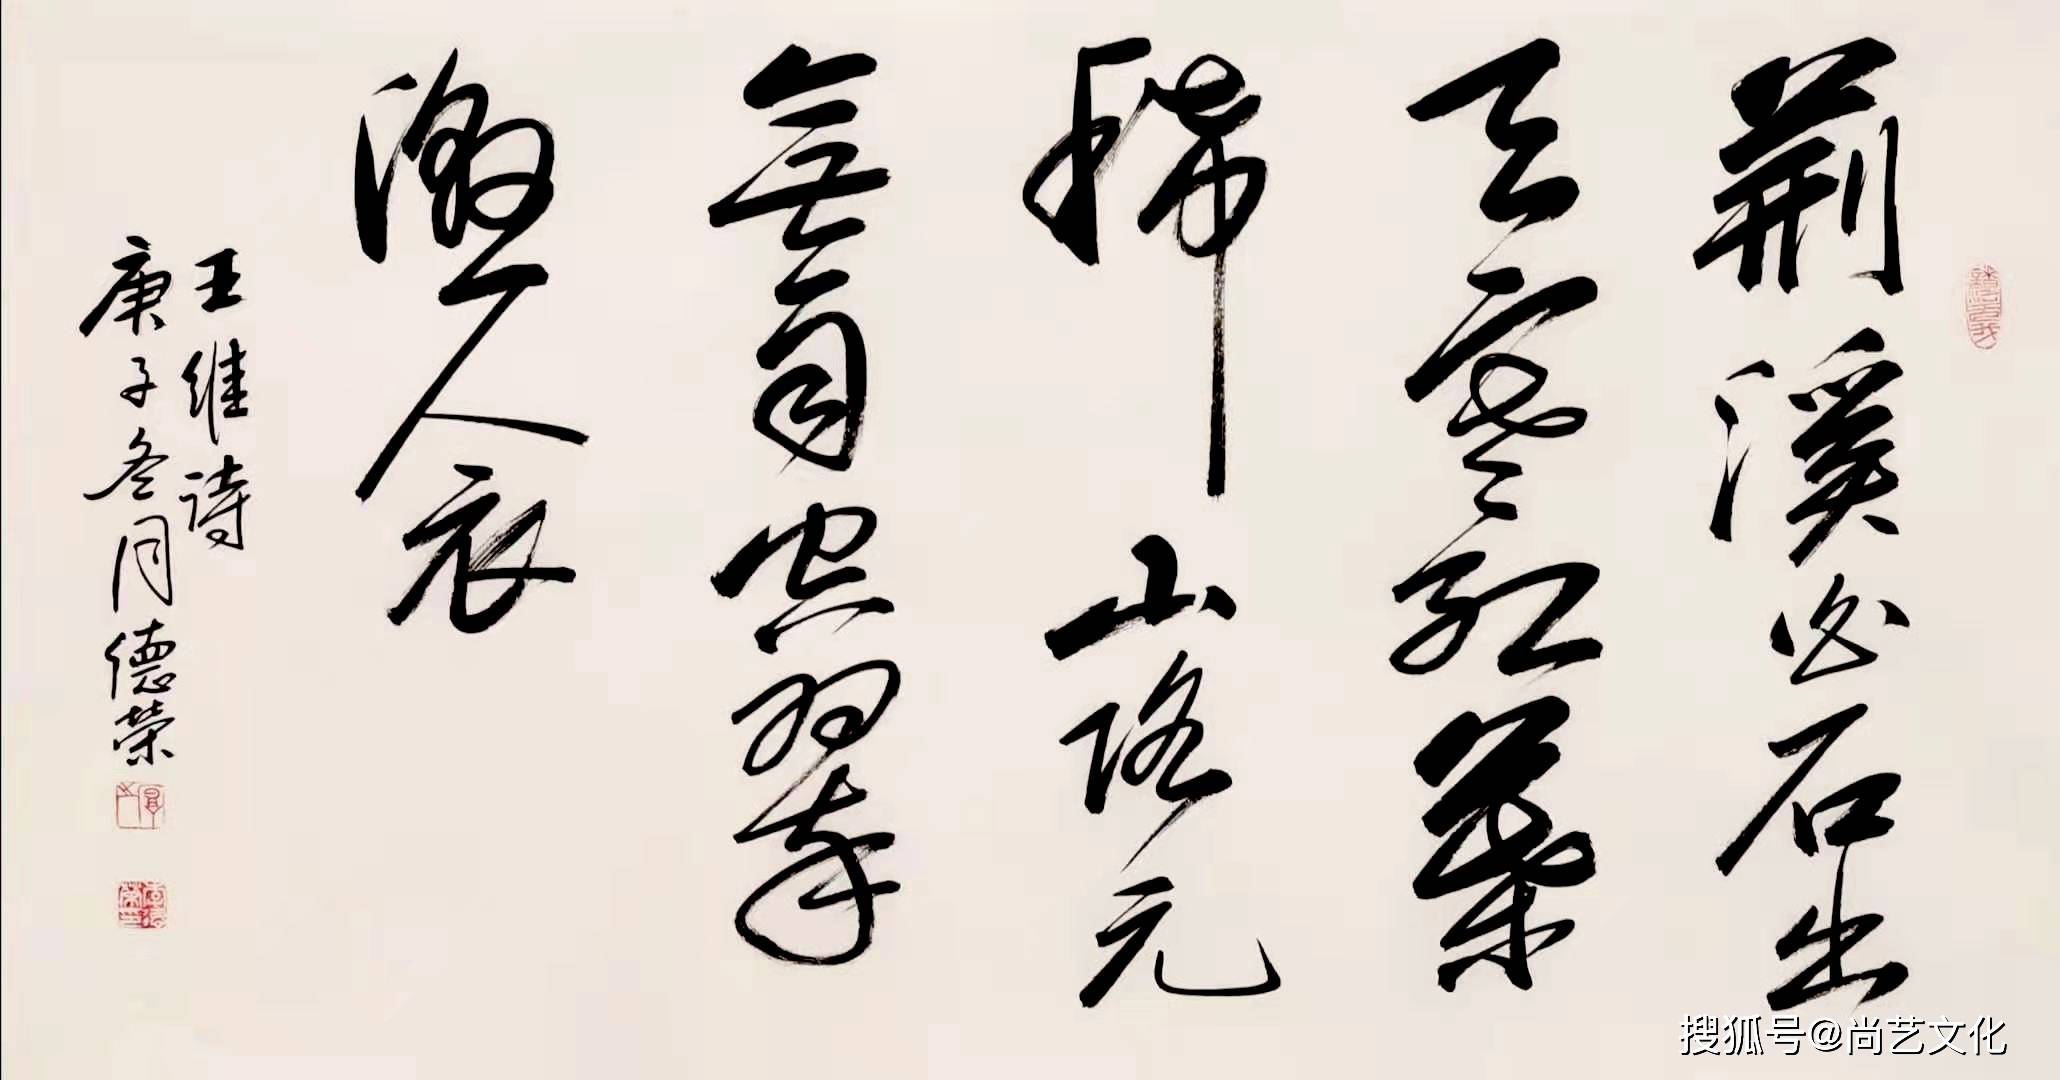 荆溪白石出
天寒红葉
稀山路元
無雨空翠
濕人衣
王维诗
庚子冬月德荣
搜狐号@尚艺文化